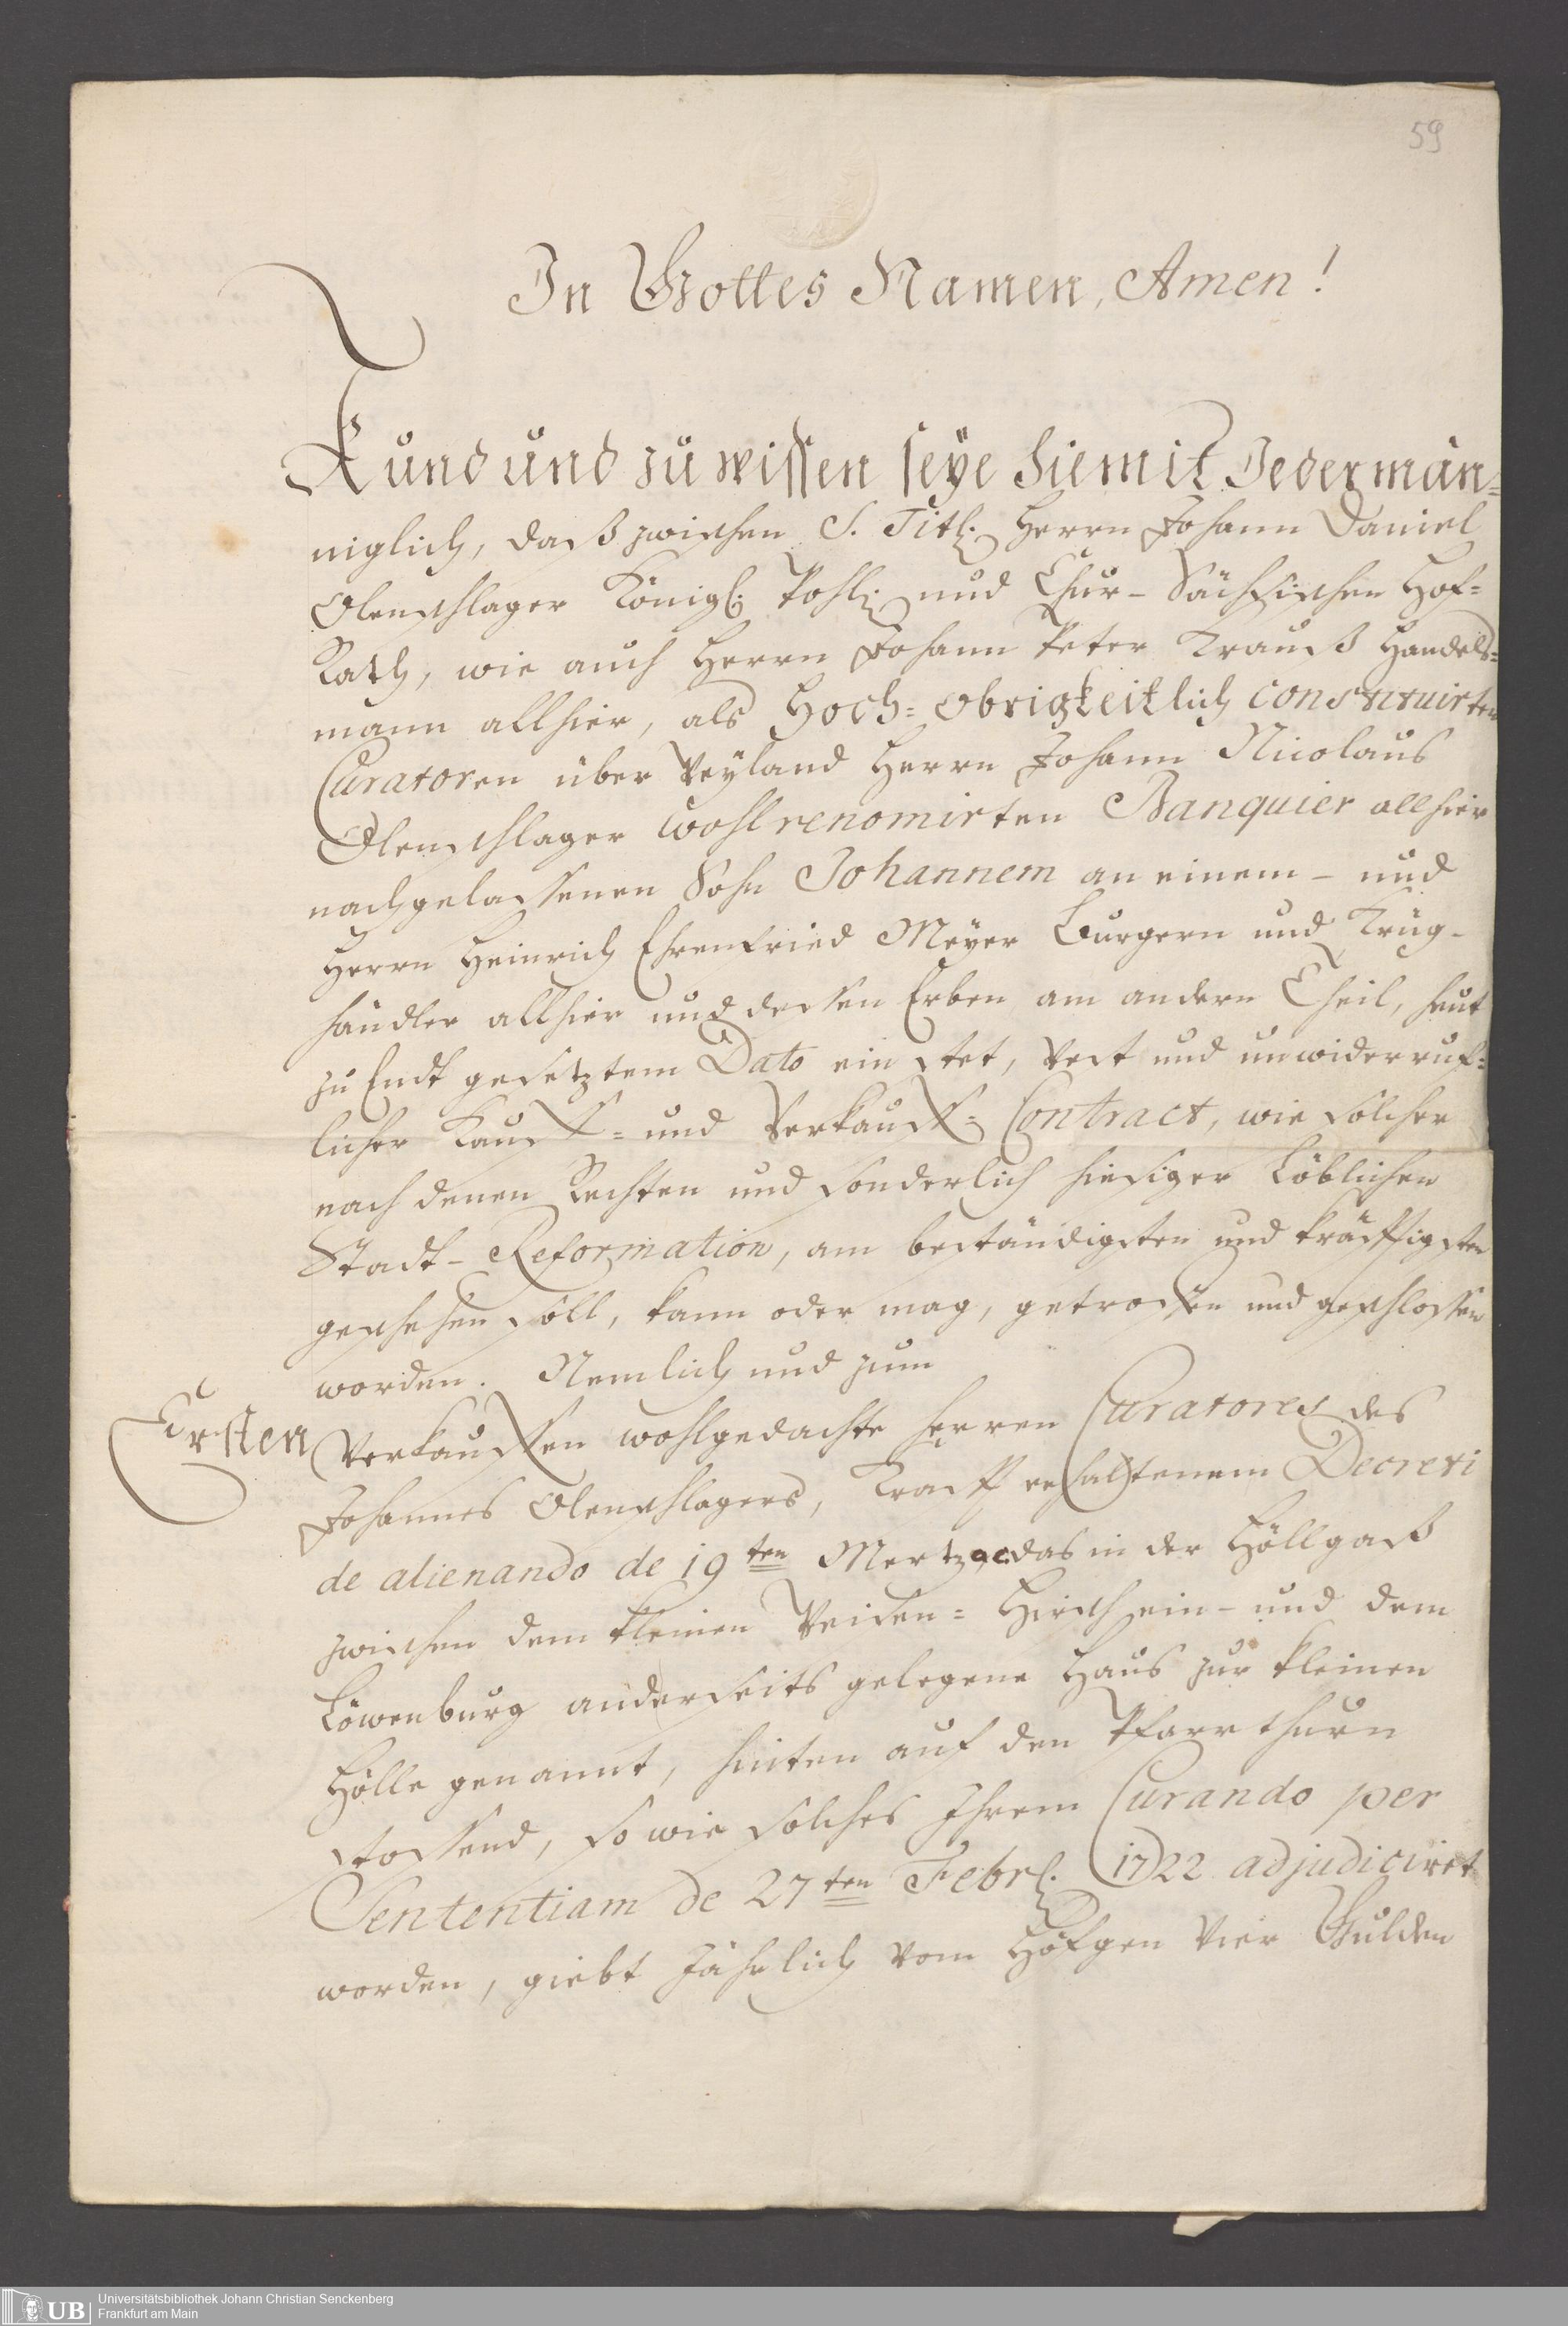 59
In Gottes Namen, Amen!
Kund und zu wissen seye hiemit Jedermän=
niglich, daß zwischen S. Titl. Herrn Johann Daniel
Olenschlager Königl. Pohl. und Chur-Sächsischen Hof=
Rath, wie auch Herrn Johann Peter Krauß Handels=
mann allhier, als Hoch=Obrigkeitlich constituirten
Curatoren über Weyland Herrn Johann Nicolaus
Olenschlager wohlrenomirten Banquier allhier
nachgelassenen Sohn Johannem an einem- und
Herrn Heinrich Ehrenfried Meyer Burgern und Krug-
händler allhier und dessen Erben am andern Theil, heut
zu Endt gesetztem Dato ein stet, vest und unwiderruf=
licher Kauff= und Verkauff=Contract, wie solcher
nach denen Rechten und sonderlich hiesiger Löblichen
Stadt-Reformation, am beständigsten und kräfftigsten
geschehen soll, kann oder mag, getroffen und geschlossen
worden. Nemlich und zum
Ersten Verkauffen wohlgedachte Herren Curatores des
Johannes Olenschlagers, Krafft erhaltenem Decreti
de alienando de 19ten Mertz a.c. das in der Höllgaß
zwischen dem kleinen Weisen=Hirsch ein- und dem
Löwenburg anderseits gelegene Haus zur kleinen
Hölle genannt, hinten auf den Pfarrthurn
stossend, so wie solches Ihrem Curando per
Sententiam de 27ten Febrl. 1722 adjudiciret
worden, giebt Jährlich vom Höfgen vier Gulden
UB
Universitätsbibliothek Johann Christian Senckenberg
Frankfurt am Main